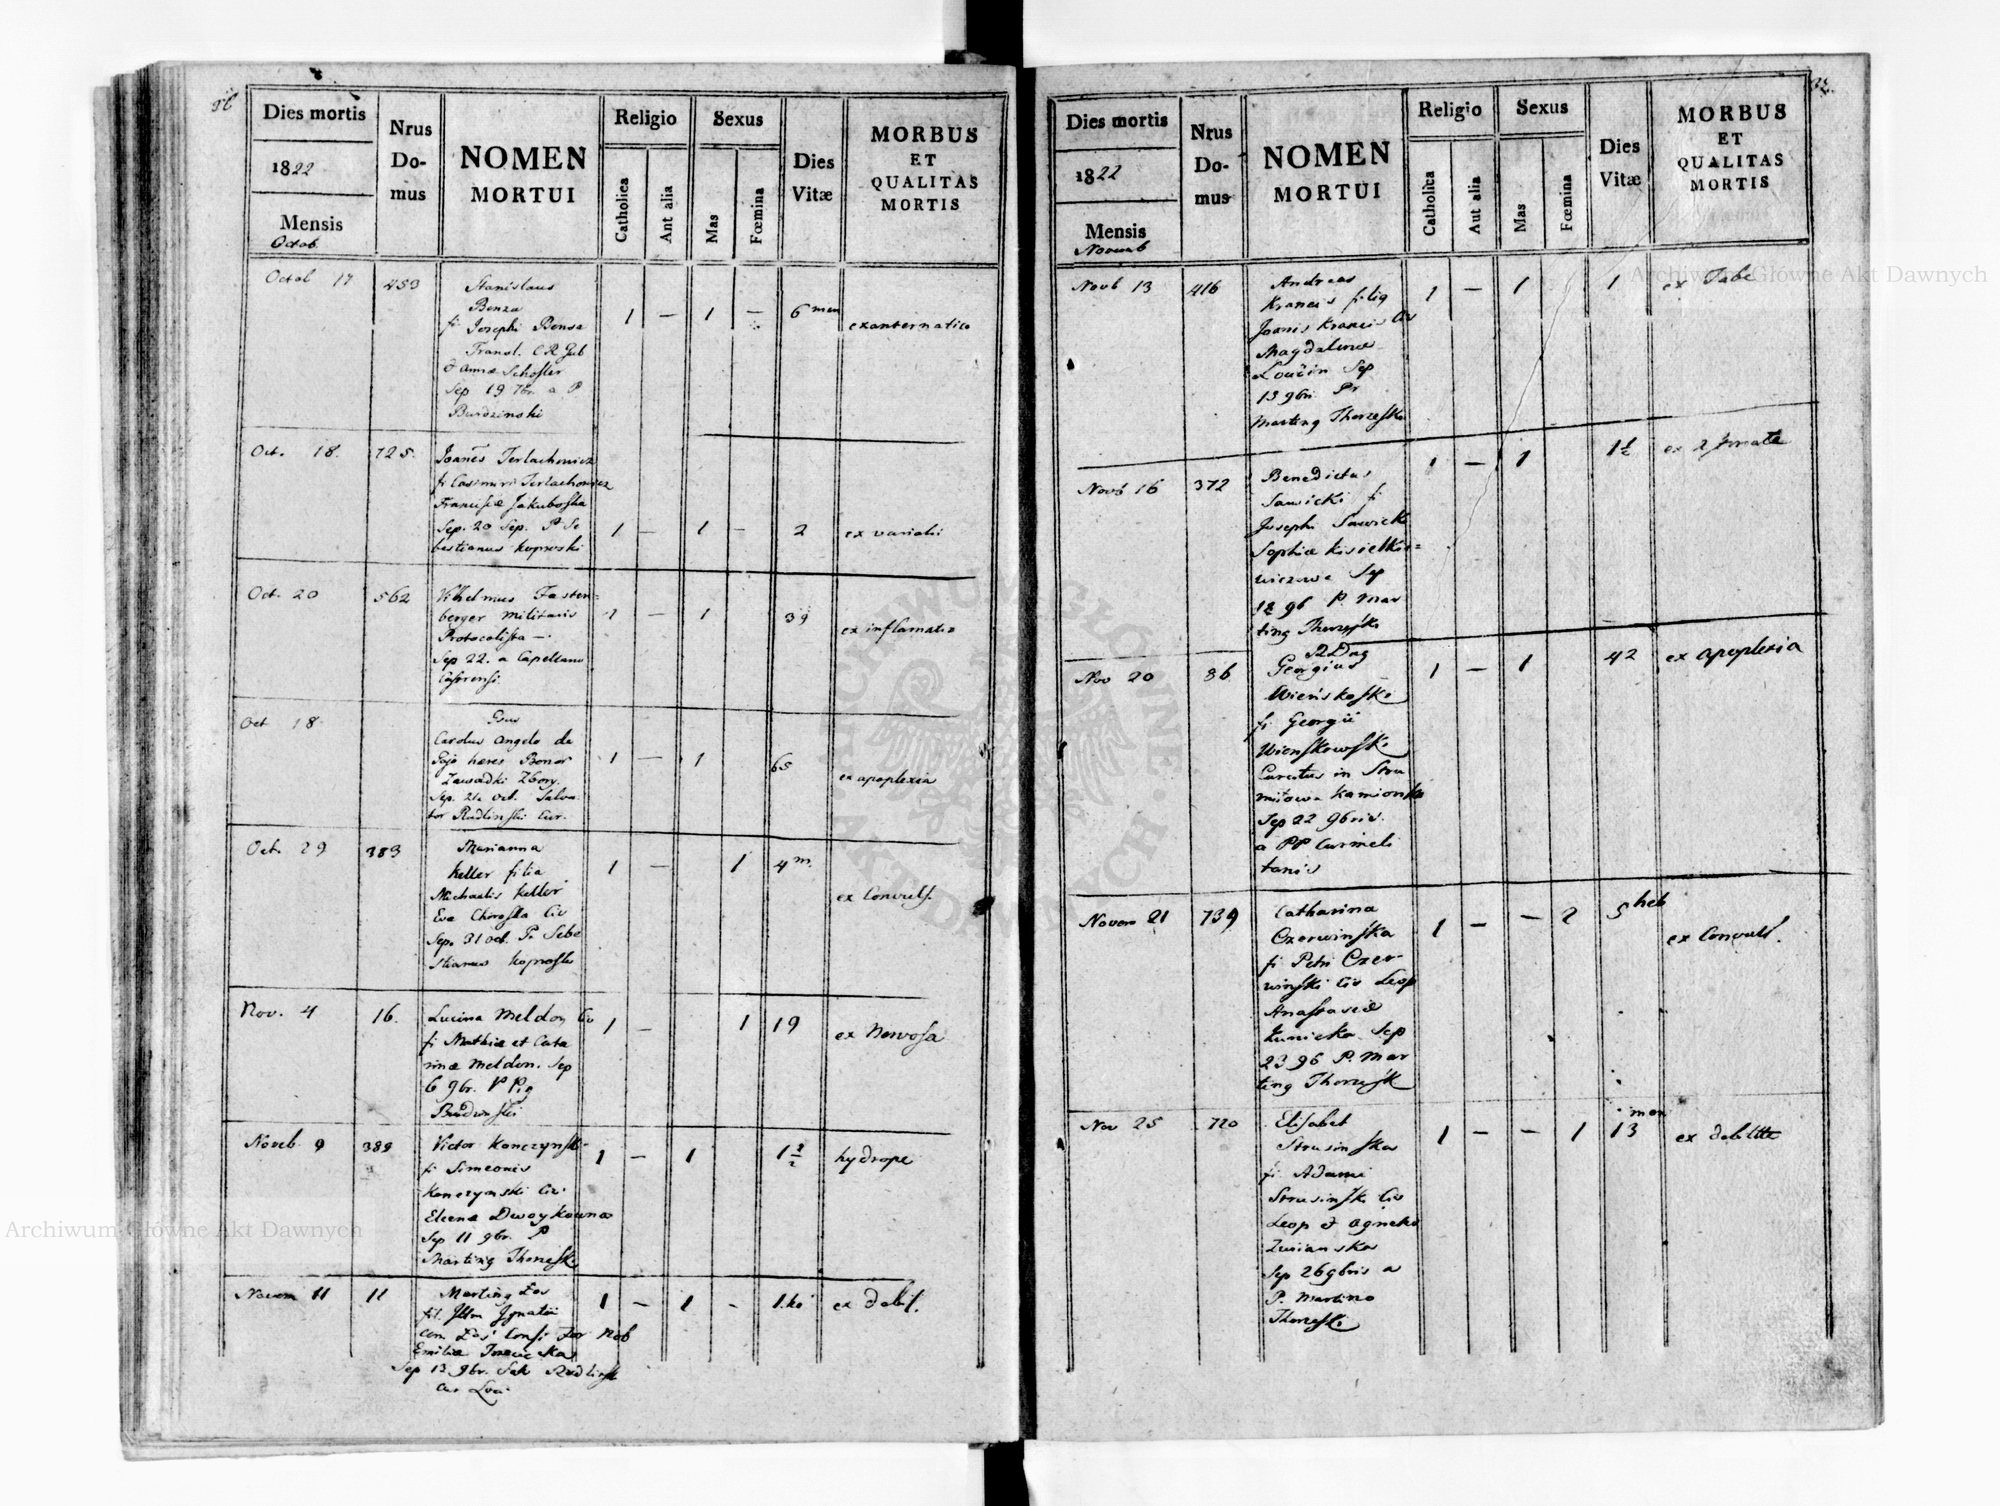 Dies mortis
1822
Mensis
Octob
Nrus
Do-
mus
NOMEN
MORTUI
Religio
Catholica
Aut alia
Sexus
Mas
Fœmina
Dies
Vitæ
MORBUS
ET
QUALITAS
MORTIS
Octob 17 453
Stanislaus
Benza
fi Josephi Bensa
Transl. C R Gub
& Annæ Schosler
Sep 19 7br. a P
Burdzinski
1 — 1 — 6 men
exanternatico
Oct. 18. 725.
Joanes Terlachowicz
fi Casimiri Terlachowicz
Franciscæ Jakuboska
Sep. 20 Sep. P Se
bastianus Koprowski
1 — 1 — 2 ex variolis
Oct. 20 562
Vilhelmus Fasten=
berger Militaris
Protocolista —.
Sep 22. a Capellano
Castrensi.
1 — 1 39 ex inflamatio
Oct 18
Carolus Angelo de
hæres Bonor
Zawadki Zbory.
Sep. 21. Oct. Salva
tor Rudlinski Cur.
1 — 1 65 ex apoplexia
Oct. 29 383
Marianna
Keller filia
Michaelis Keller
Eva Choroska Civ
Sep. 31 oct. P. Seba
stianus Koproski
1 — 1 4 m.
ex Convuls.
Nov. 4 16.
Lucina Meldon Civ
fi Mathiæ et Cata
rinæ Meldon. Sep
6 9br. P Pig
Burdzinski
1 — 1 19 ex Nervosa
Noveb. 9 389
Victor Konczynski
fi Simeonis
Konczynski Civ.
Elenæ Dwoykowna
Sep 11 9br. P
Marting Thorzeski
1 — 1 1 1/2 hydrope
Novem 11 11
Marting Łos
fil. Illm Ignatii
com Łos Consi For Nob
Emiliæ
Sep 13. 9br. Sal. Rudlinsk
cur Loci
1 — 1 - ex debil.
Dies mortis
1822
Mensis
Novemb
Nrus
Do-
mus
NOMEN
MORTUI
Religio
Catholica
Aut alia
Sexus
Mas
Fœmina
Dies
Vitæ
MORBUS
ET
QUALITAS
MORTIS
Novb 13 416
Andreas
Krancis filig
Joanis Krancis Civ
Magdalenæ
Sep
13 9bri Pr
Marting Thorzeski
1 — 1 1 ex Tabe
Novb 16 372
Benedictus
Sawicki fi
Josephi Sawicki
Sophiæ Kisielkie=
wiczowa Sep
18 9b P. Mar
ting Thorzeski
1 — 1 1 1/2
Nov 20 86
Georgius
Wienskoski
fi Georgii
Wienskowski
Curatus in Stru
miłowa Kamionka
Sep 22 9bris.
a PP Carmeli
tanis
1 — 1 42 ex apoplexia
Novem 21 739
Catharina
Czerwinska
fi Petri Czer-
winski Civ Leop
Anastasiæ
Kunicka Sep
23 9b P. Mar
ting Thorzesk
1 — — 2 5 heb
ex Convuls.
Nov 25 720
Elisabet
Strusinska
fi Adami
Strusinski Civ
Leop & Agnetis
Zurianska
Sep 26 9bris a
P. Martino
Thorzeski
1 — — 1 13 men
ex debilite
Archiwum Główne Akt Dawnych
Archiwum Główne Akt Dawnych
ARCHIWUM GŁÓWNE AKT DAWNYCH